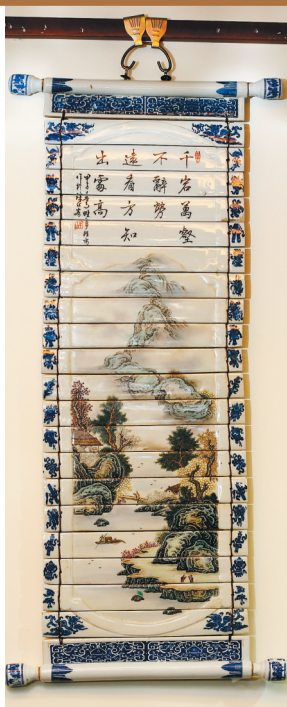 千岩萬壑
不辭勞
遠看方知
出處高